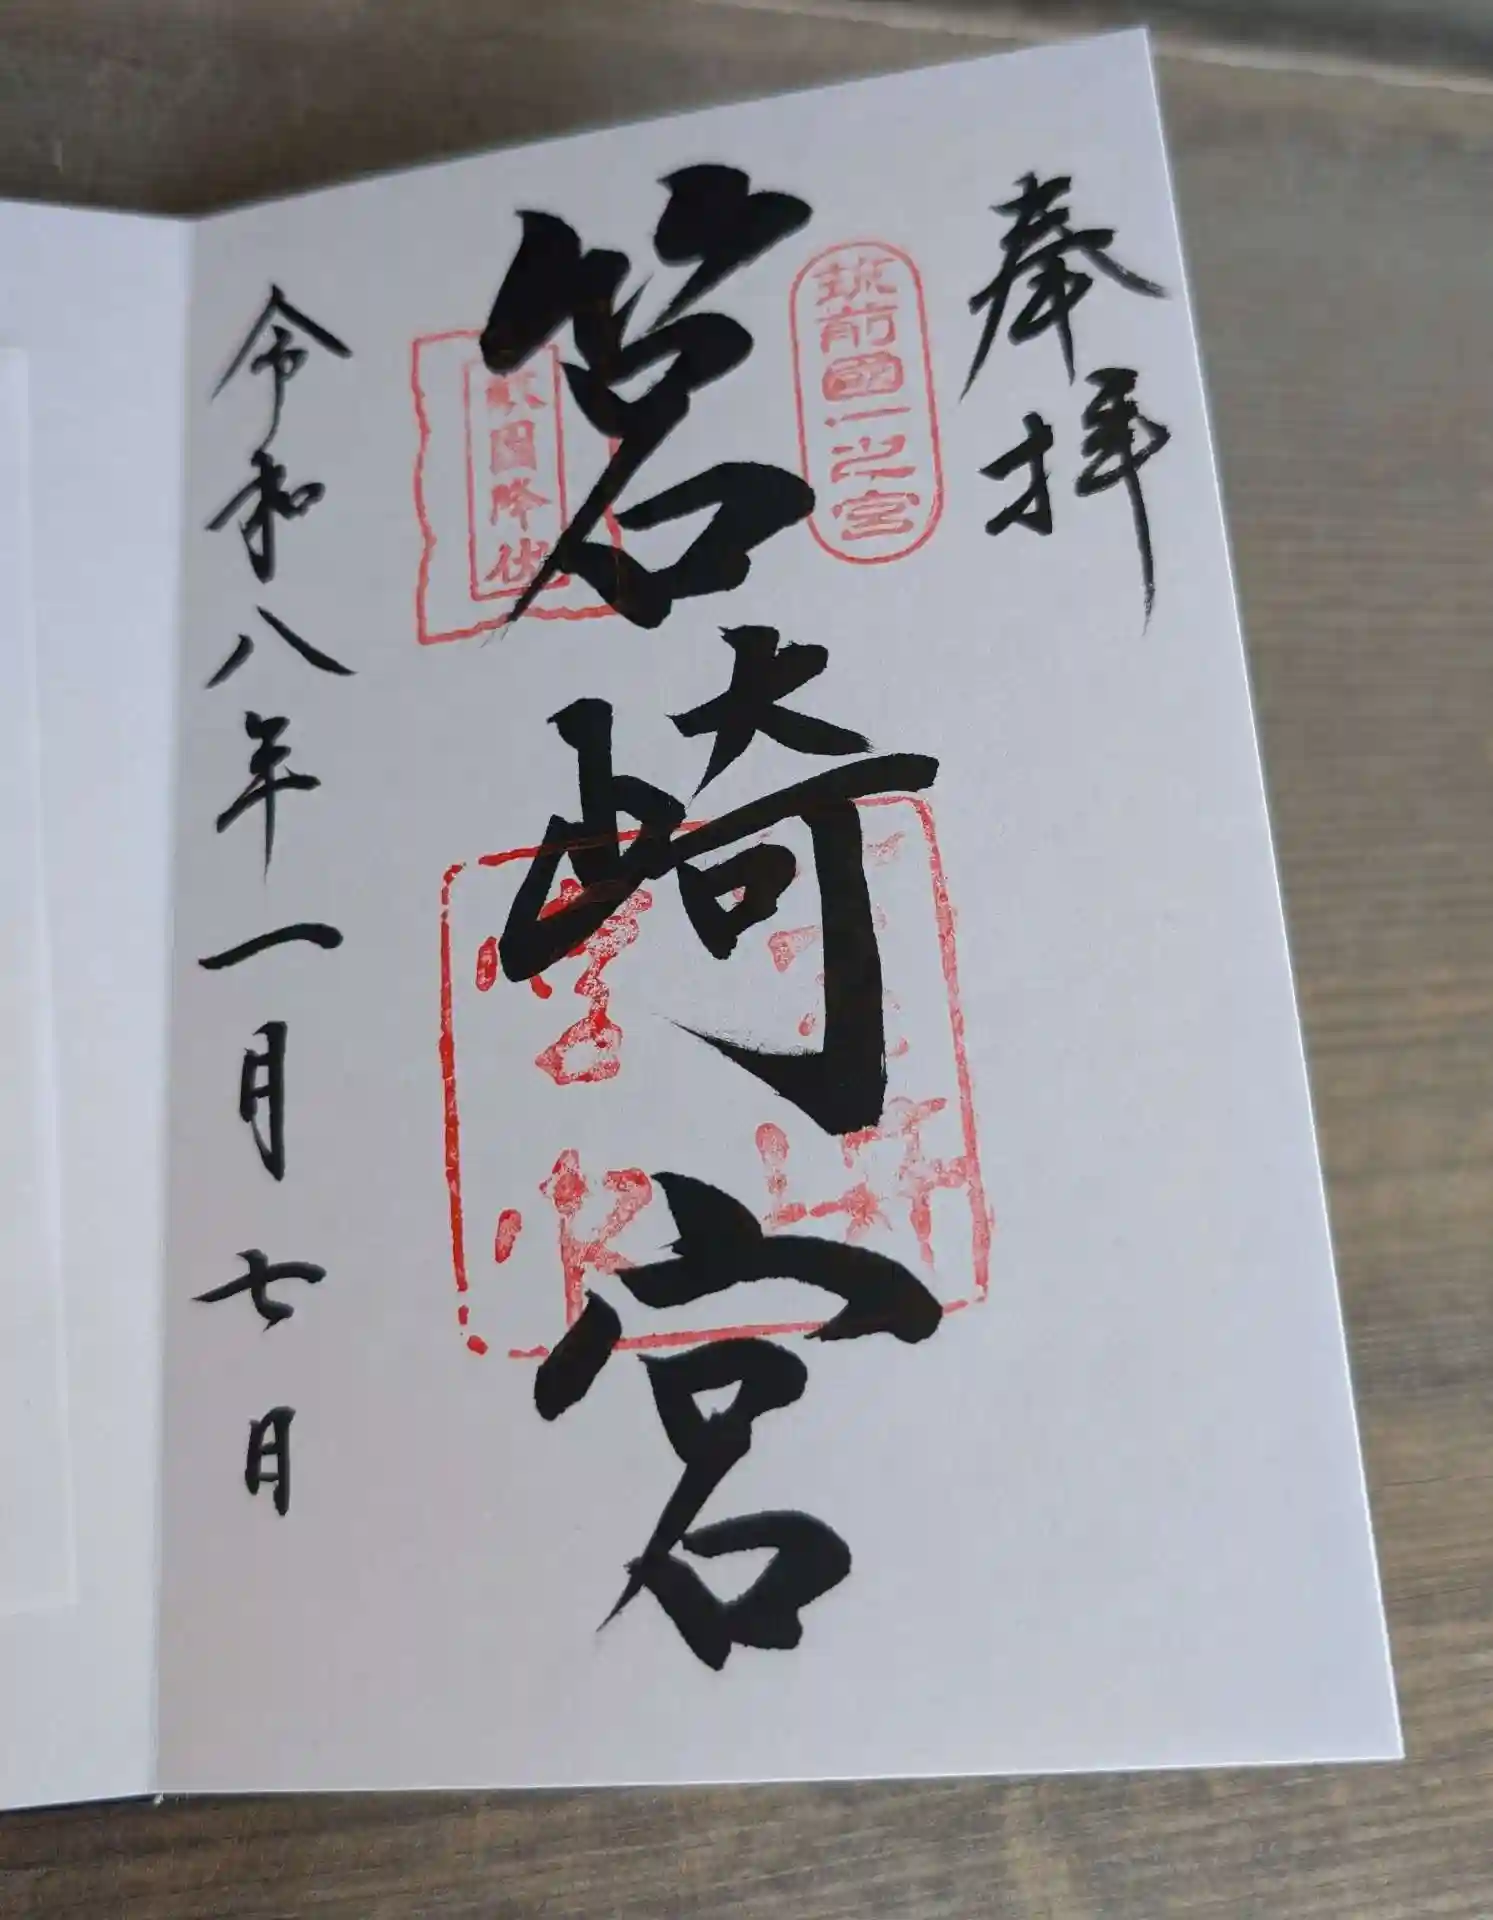 奉拝
筑前國一之宮
筥崎宮
敵國降伏
令和八年一月七日